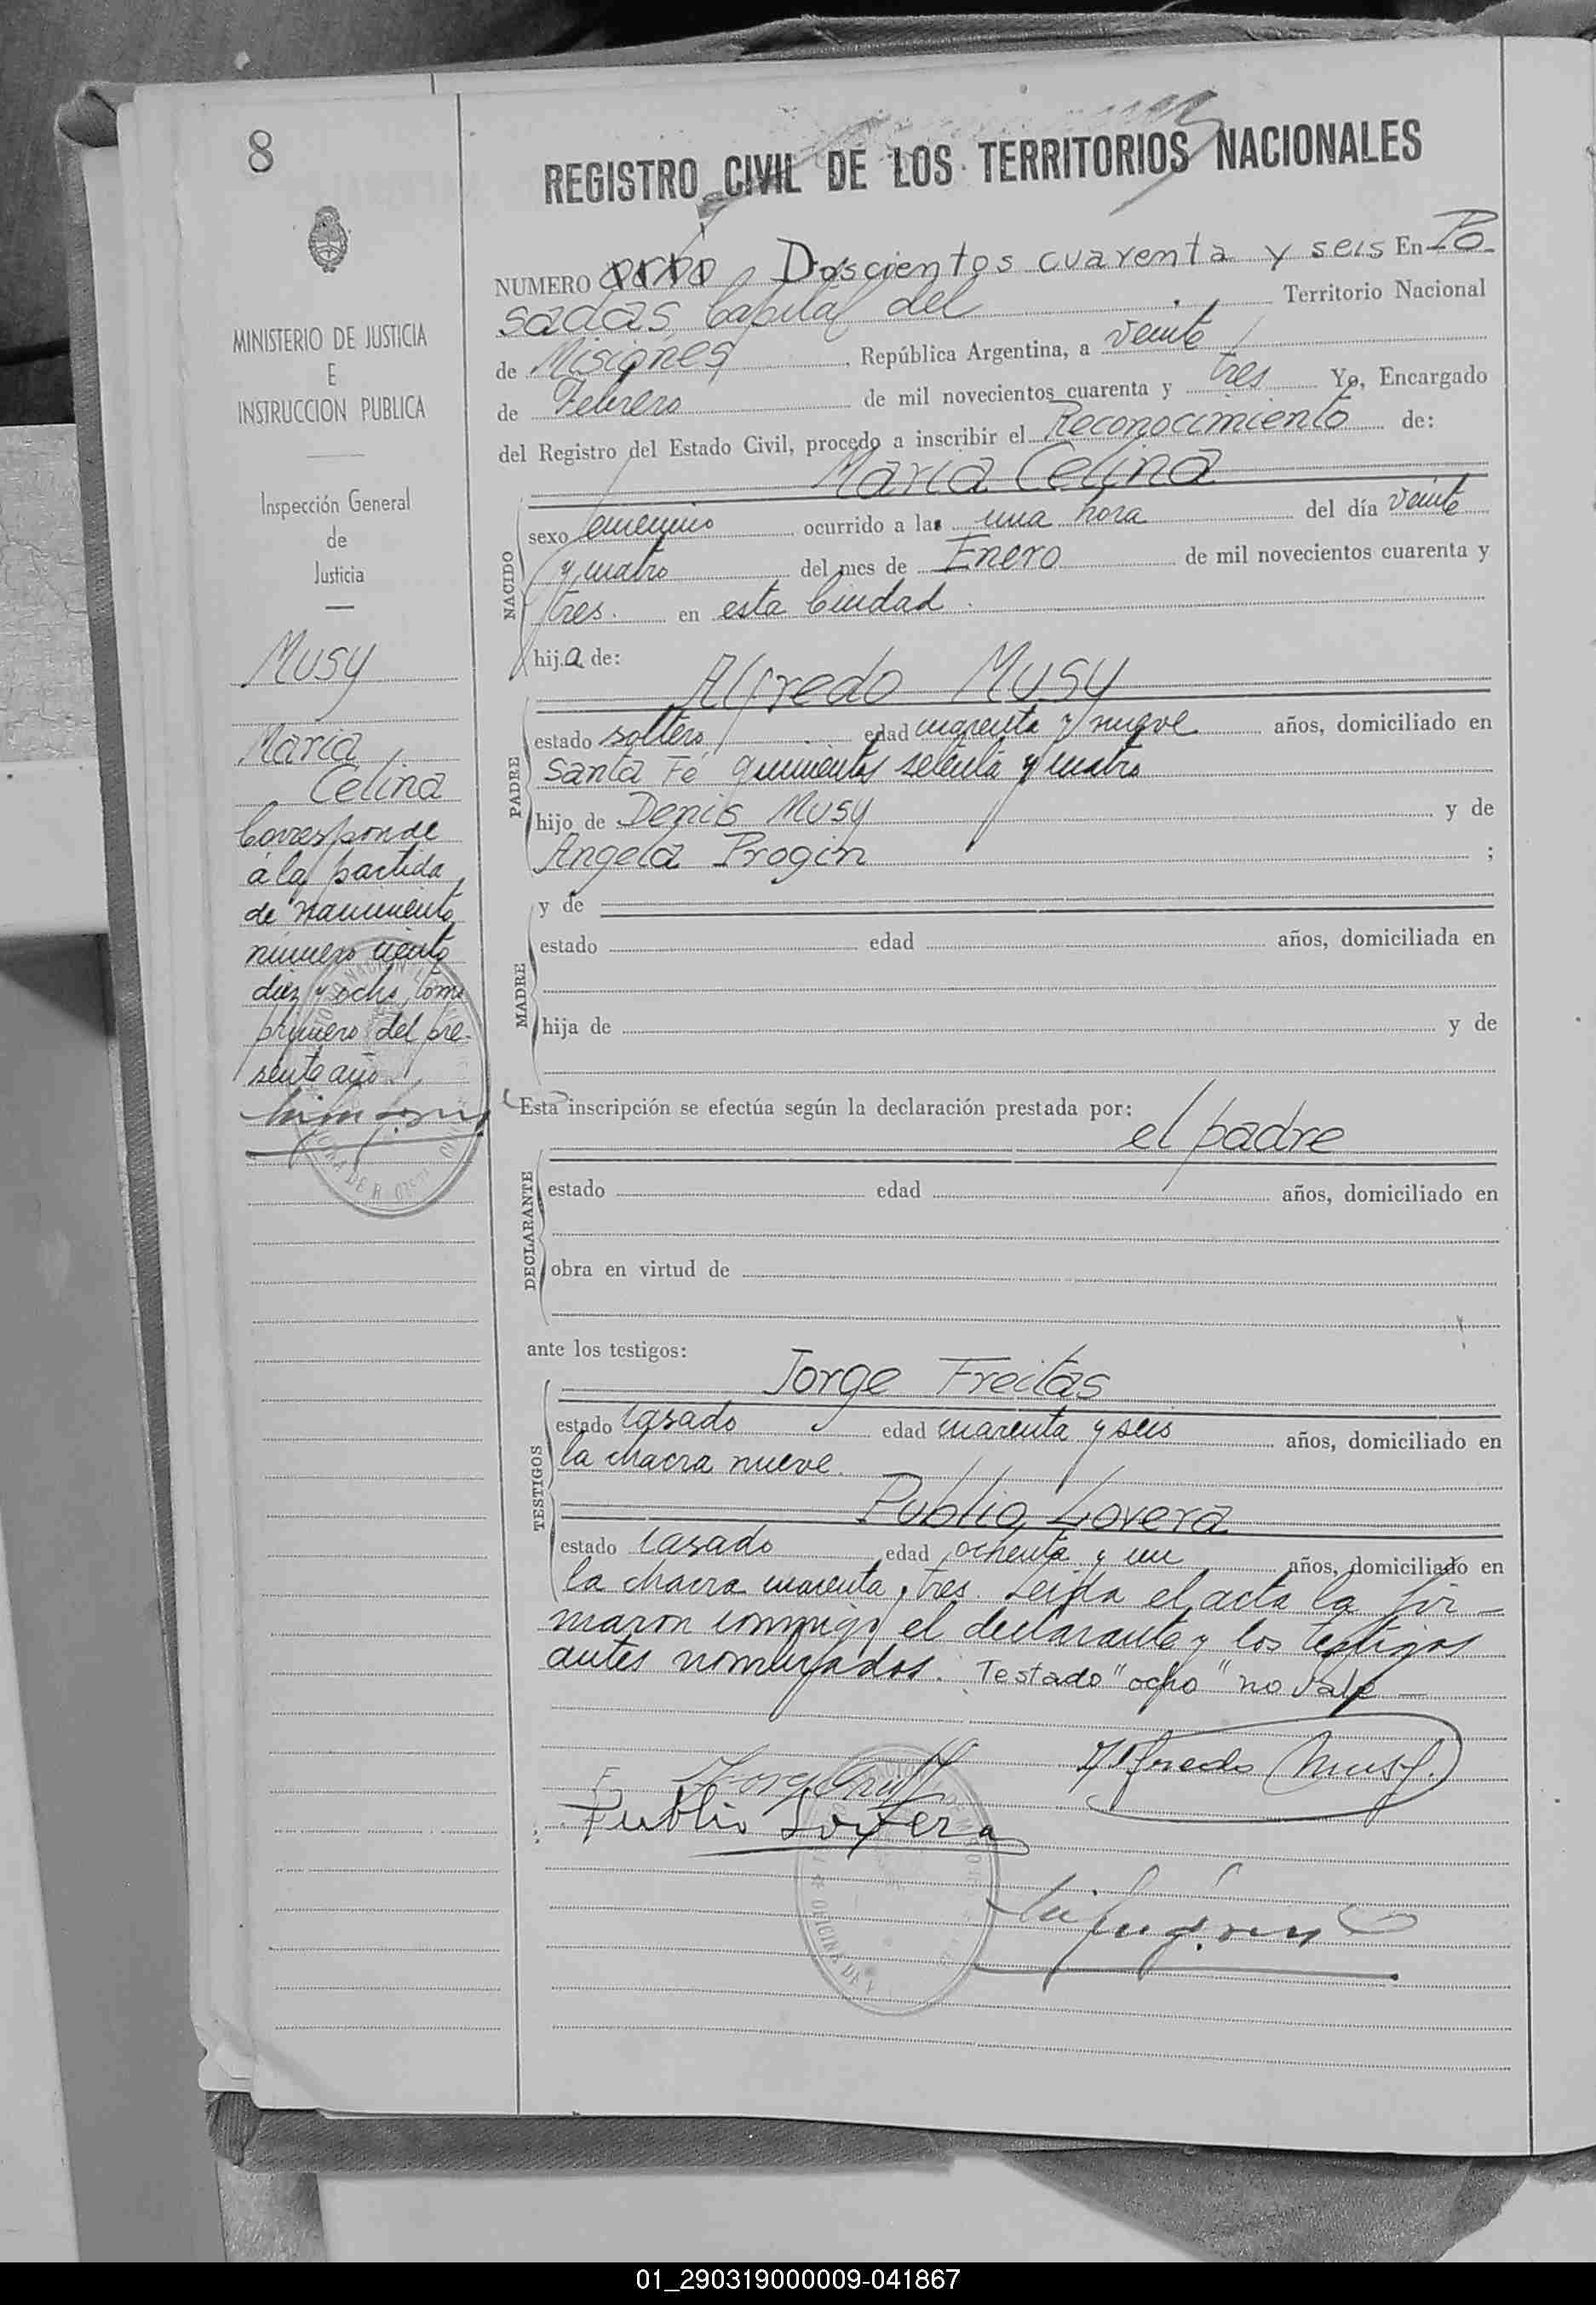 8
REGISTRO CIVIL DE LOS TERRITORIOS NACIONALES
NUMERO ocho Doscientos cuarenta y seis En Po-
sadas, Capital del Territorio Nacional
de Misiones, República Argentina, a veinte
de Febrero de mil novecientos cuarenta y tres Yo, Encargado
del Registro del Estado Civil, procedo a inscribir el Reconocimiento de:
María Celina
NACIDO
sexo femenino ocurrido a las una hora del día veinte
y cuatro del mes de Enero de mil novecientos cuarenta y
tres. en esta Ciudad.
hija de:
Alfredo Musy
PADRE
estado soltero, edad cuarenta y nueve años, domiciliado en
Santa Fé quinientos setenta y cuatro
hijo de Denis Musy y de
Angela Progin ;
MADRE
y de
estado edad años, domiciliada en
hija de y de
Esta inscripción se efectúa según la declaración prestada por:
el padre
DECLARANTE
estado edad años, domiciliado en
obra en virtud de
ante los testigos:
TESTIGOS
Jorge Freitas
estado casado edad cuarenta y seis años, domiciliado en
la chacra nueve.
Publio Lovera
estado casado edad ochenta y un años, domiciliado en
la chacra cuarenta y tres. Leída el acta la fir-
maron conmigo el declarante y los testigos
antes nombrados. Testado "ocho" no vale—
Alfredo Musy.
Publio Lovera
MINISTERIO DE JUSTICIA
E
INSTRUCCION PUBLICA
Inspección General
de
Justicia
Musy
María
Celina
Corresponde
a la partida
de nacimiento
número ciento
diez y ocho, tomo
primero del pre-
sente año.
OFICINA DE R
01_290319000009-041867